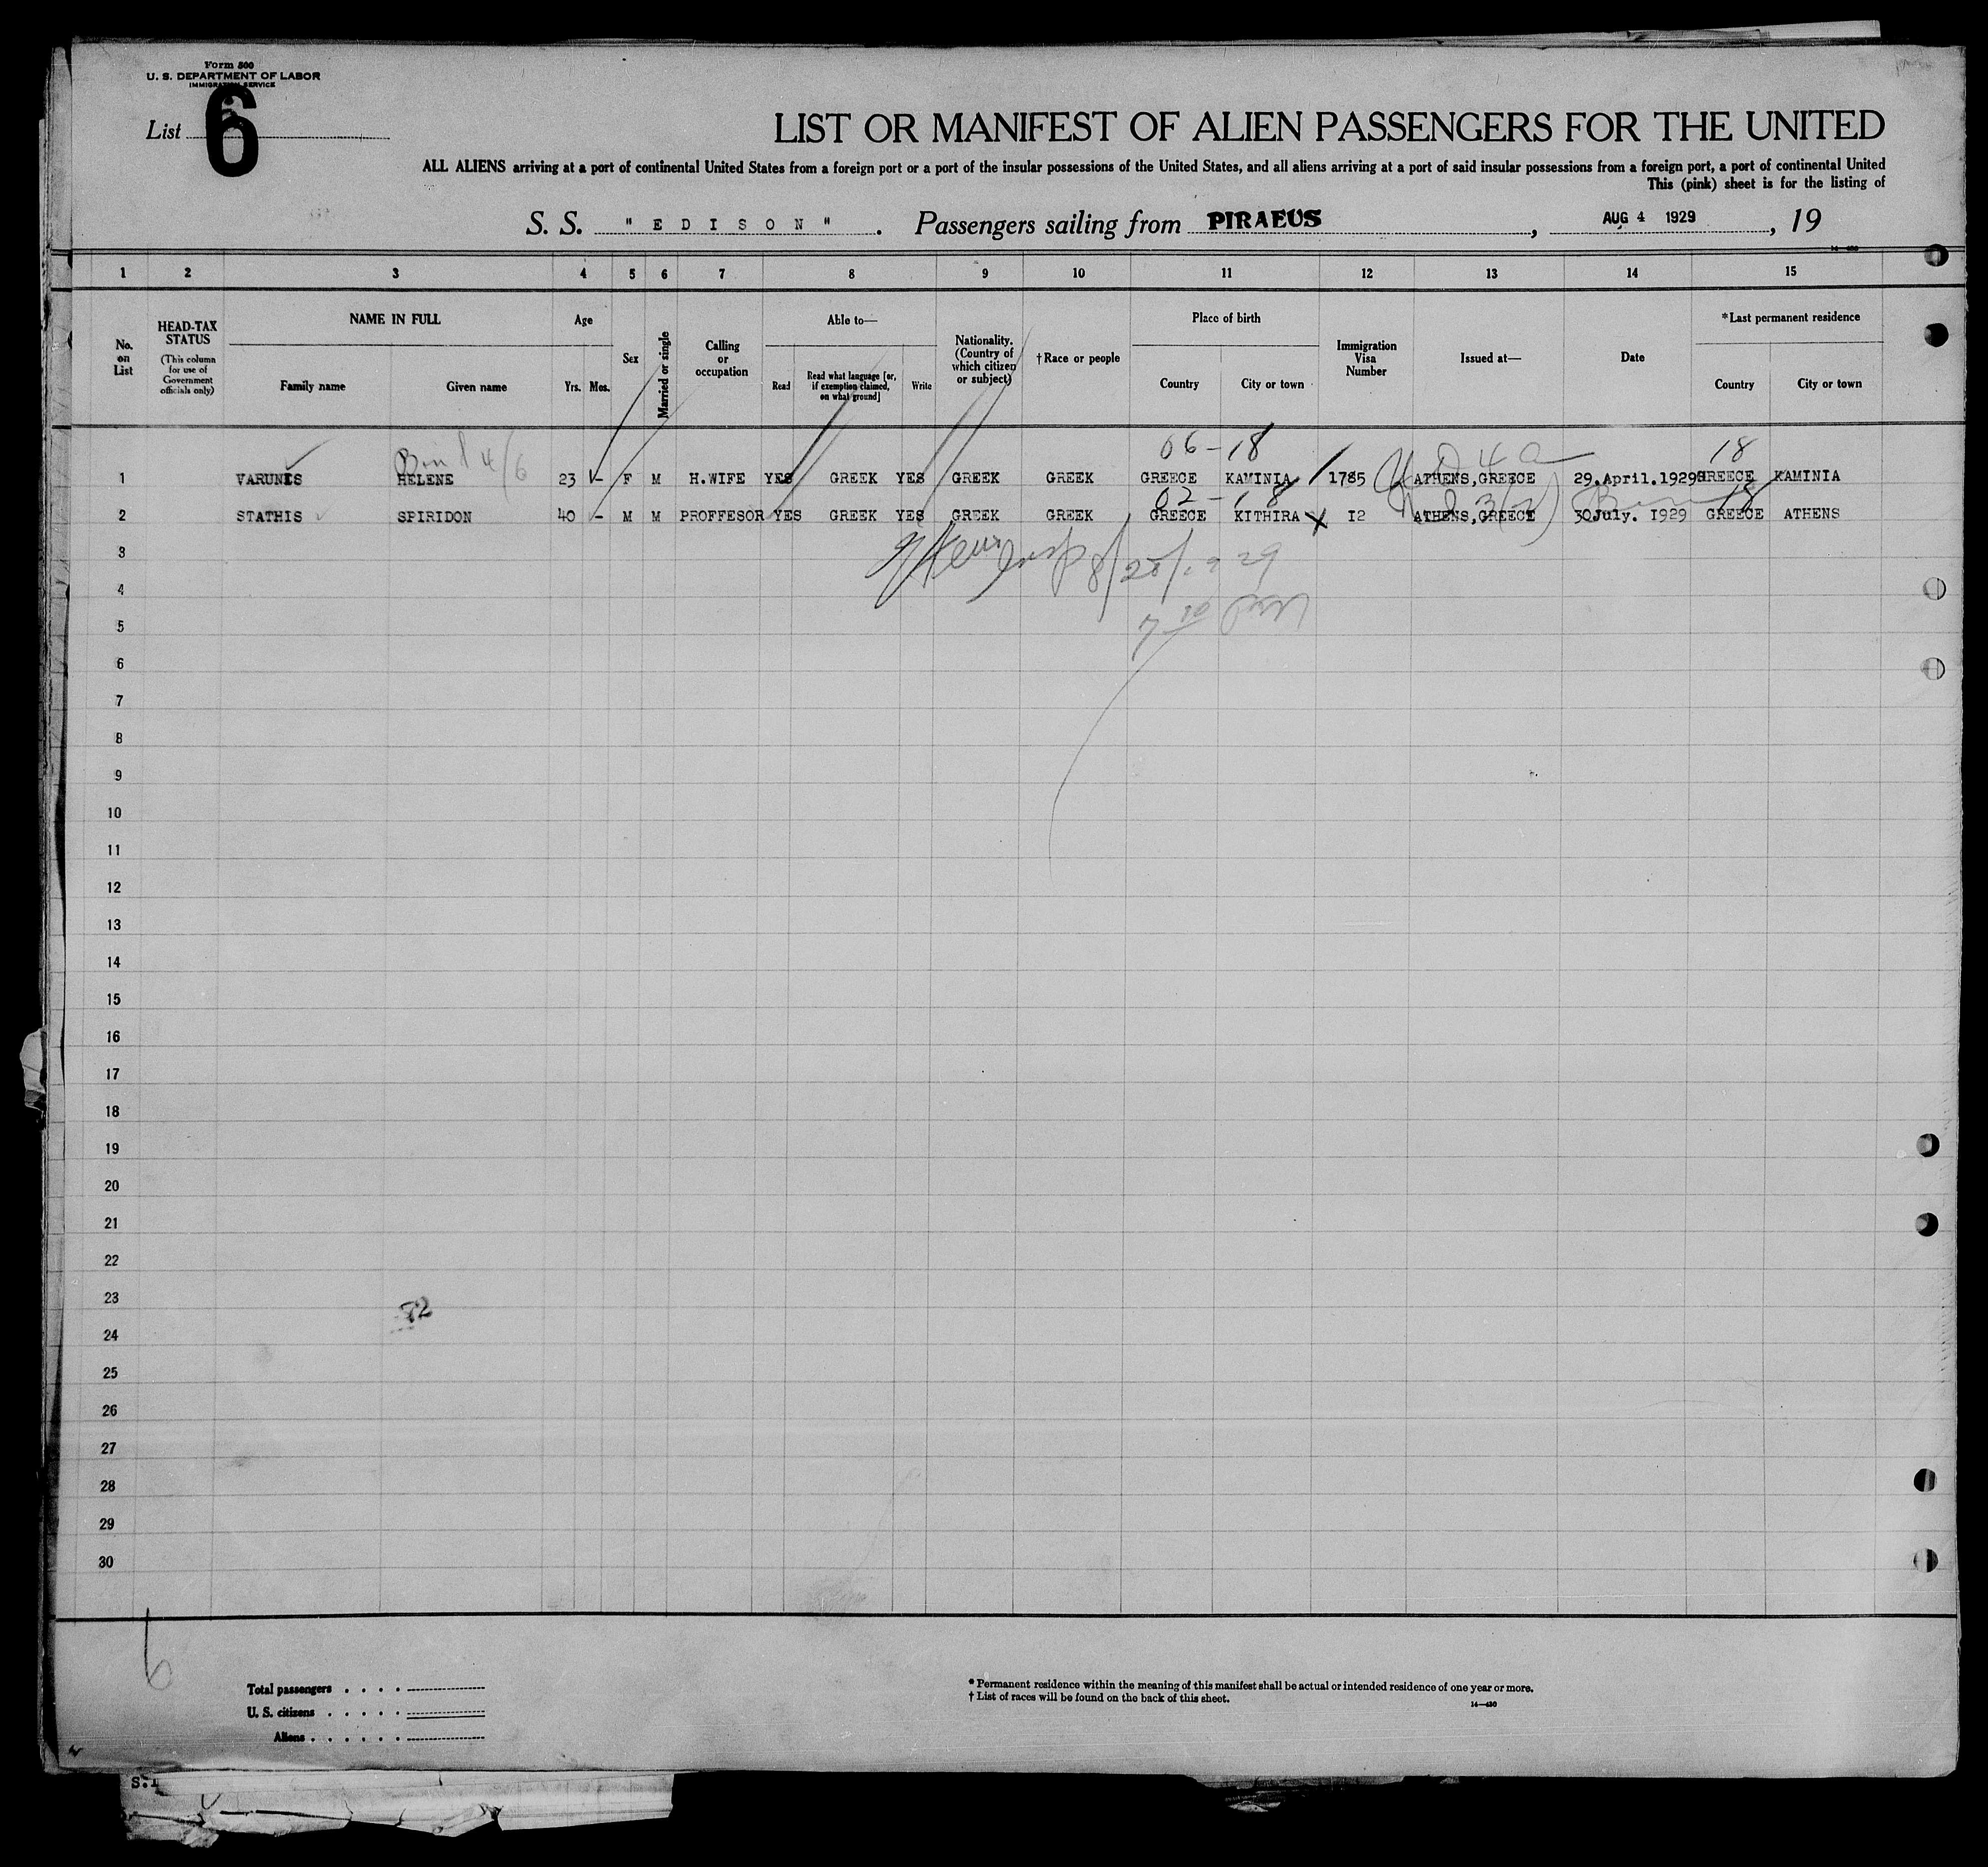 Form 500
U. S. DEPARTMENT OF LABOR
IMMIGRATION SERVICE
List 6
LIST OR MANIFEST OF ALIEN PASSENGERS FOR THE UNITED
ALL ALIENS arriving at a port of continental United States from a foreign port or a port of the insular possessions of the United States, and all aliens arriving at a port of said insular possessions from a foreign port, a port of continental United
This (pink) sheet is for the listing of
S. S. "EDISON". Passengers sailing from PIRAEUS, AUG 4 1929, 19
1 2 3 4 5 6 7 8 9 10 11 12 13 14 15
No. on List
HEAD-TAX STATUS
(This column for use of Government officials only)
NAME IN FULL
Family name Given name
Age
Yrs. Mos.
Sex
Married or single
Calling or occupation
Able to—
Read
Read what language [or, if exemption claimed, on what ground]
Write
Nationality. (Country of which citizen or subject)
†Race or people
Place of birth
Country City or town
Immigration Visa Number
Issued at—
Date
*Last permanent residence
Country City or town
06-18 18
1 VARUNIS HELENE 23 - F M H.WIFE YES GREEK YES GREEK GREEK GREECE KAMINIA 1785 ATHENS,GREECE 29.April.1929 GREECE KAMINIA
02-18 18
2 STATHIS SPIRIDON 40 - M M PROFFESOR YES GREEK YES GREEK GREEK GREECE KITHIRA I2 ATHENS,GREECE 30July. I929 GREECE ATHENS
3
4
5
6
7
8
9
10
11
12
13
14
15
16
17
18
19
20
21
22
23
24
25
26
27
28
29
30
6
Total passengers
U. S. citizens
Aliens
* Permanent residence within the meaning of this manifest shall be actual or intended residence of one year or more.
† List of races will be found on the back of this sheet.
14—430